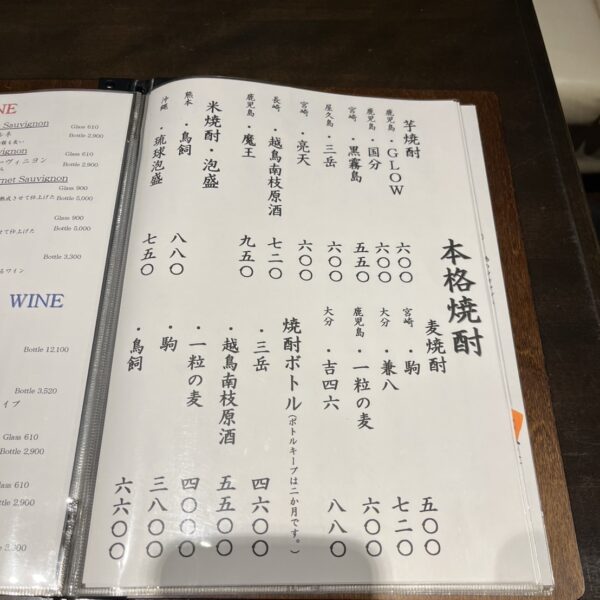 本格焼酎
芋焼酎
鹿児島・GLOW 六〇〇
鹿児島・国分 六〇〇
宮崎・黒霧島 五五〇
屋久島・三岳 六〇〇
宮崎・亮天 六〇〇
長崎・越鳥南枝原酒 七二〇
鹿児島・魔王 九五〇
米焼酎・泡盛
熊本・鳥飼 八八〇
沖縄・琉球泡盛 七五〇
麦焼酎
宮崎・駒 五〇〇
大分・兼八 七二〇
鹿児島・一粒の麦 六〇〇
大分・吉四六 八八〇
焼酎ボトル(ボトルキープは二か月です。)
・三岳 四六〇〇
・越鳥南枝原酒 五五〇〇
・一粒の麦 四〇〇〇
・駒 三八〇〇
・鳥飼 六六〇〇
NE
Sauvignon Glass 610
Bottle 2,900
vignon Glass 610
ーヴィニヨン Bottle 2,900
rnet Sauvignon
Glass 900
熟成させて仕上げた Bottle 5,000
Glass 900
させて仕上げた Bottle 5,000
Bottle 3,300
るワイン
WINE
Bottle 12,100
Bottle 3,520
イプ
Glass 610
Bottle 2,900
Glass 610
Bottle 2,900